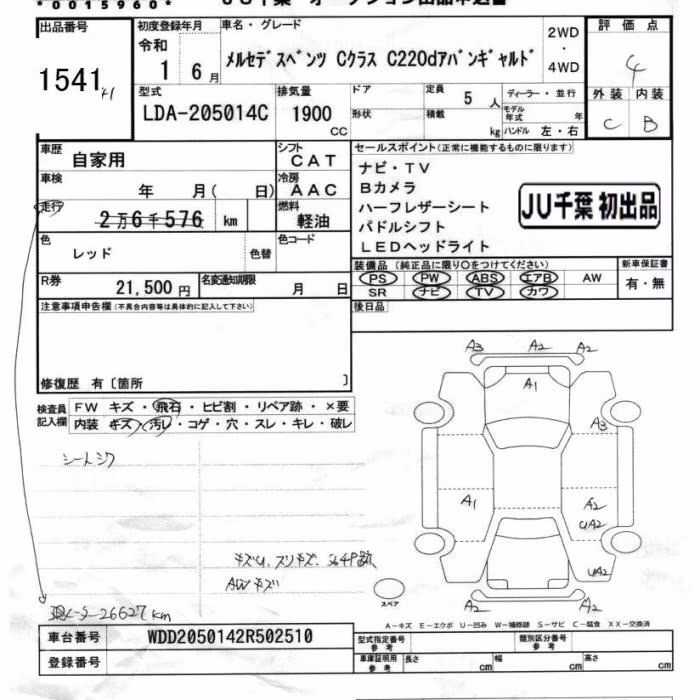 *0015960*
JU千葉 オークション出品申込書
出品番号
1541
初度登録年月
令和
1 6月
車名・グレード
メルセデスベンツ Cクラス C220dアバンギャルド
2WD
・
4WD
評価点
4
外装 内装
C B
型式
LDA-205014C
排気量
1900
CC
ドア
形状
定員
5 人
積載
kg
ディーラー・並行
モデル年式 年
ハンドル 左・右
車歴
自家用
シフト
CAT
車検
年 月( 日)
冷房
AAC
走行
2万6千576 km
燃料
軽油
色
レッド
色替
色コード
R券
21,500円
名変通知期限
月 日
セールスポイント(正常に機能するものに限ります)
ナビ・TV
Bカメラ
ハーフレザーシート
パドルシフト
LEDヘッドライト
JU千葉 初出品
装備品(純正品に限り○をつけてください)
PS PW ABS エアB AW
SR ナビ TV カワ
新車保証書
有・無
後日品
注意事項申告欄(不具合内容等は具体的に記入して下さい)
修復歴 有〔箇所 〕
検査員記入欄
FW キズ・飛石・ヒビ割・リペア跡・×要
内装 キズ・汚レ・コゲ・穴・スレ・キレ・破レ
シートシワ
AWキズ
26627km
A3 A2 A2
A1
A3
A1
A2
UA2
UA2
A2 A2
スペア
A-キズ E-エクボ U-凹み W-補修跡 S-サビ C-腐食 XX-交換済
車台番号
WDD2050142R502510
登録番号
型式指定番号
参考
類別区分番号
参考
車庫証明用
参考
長さ cm
幅 cm
高さ cm